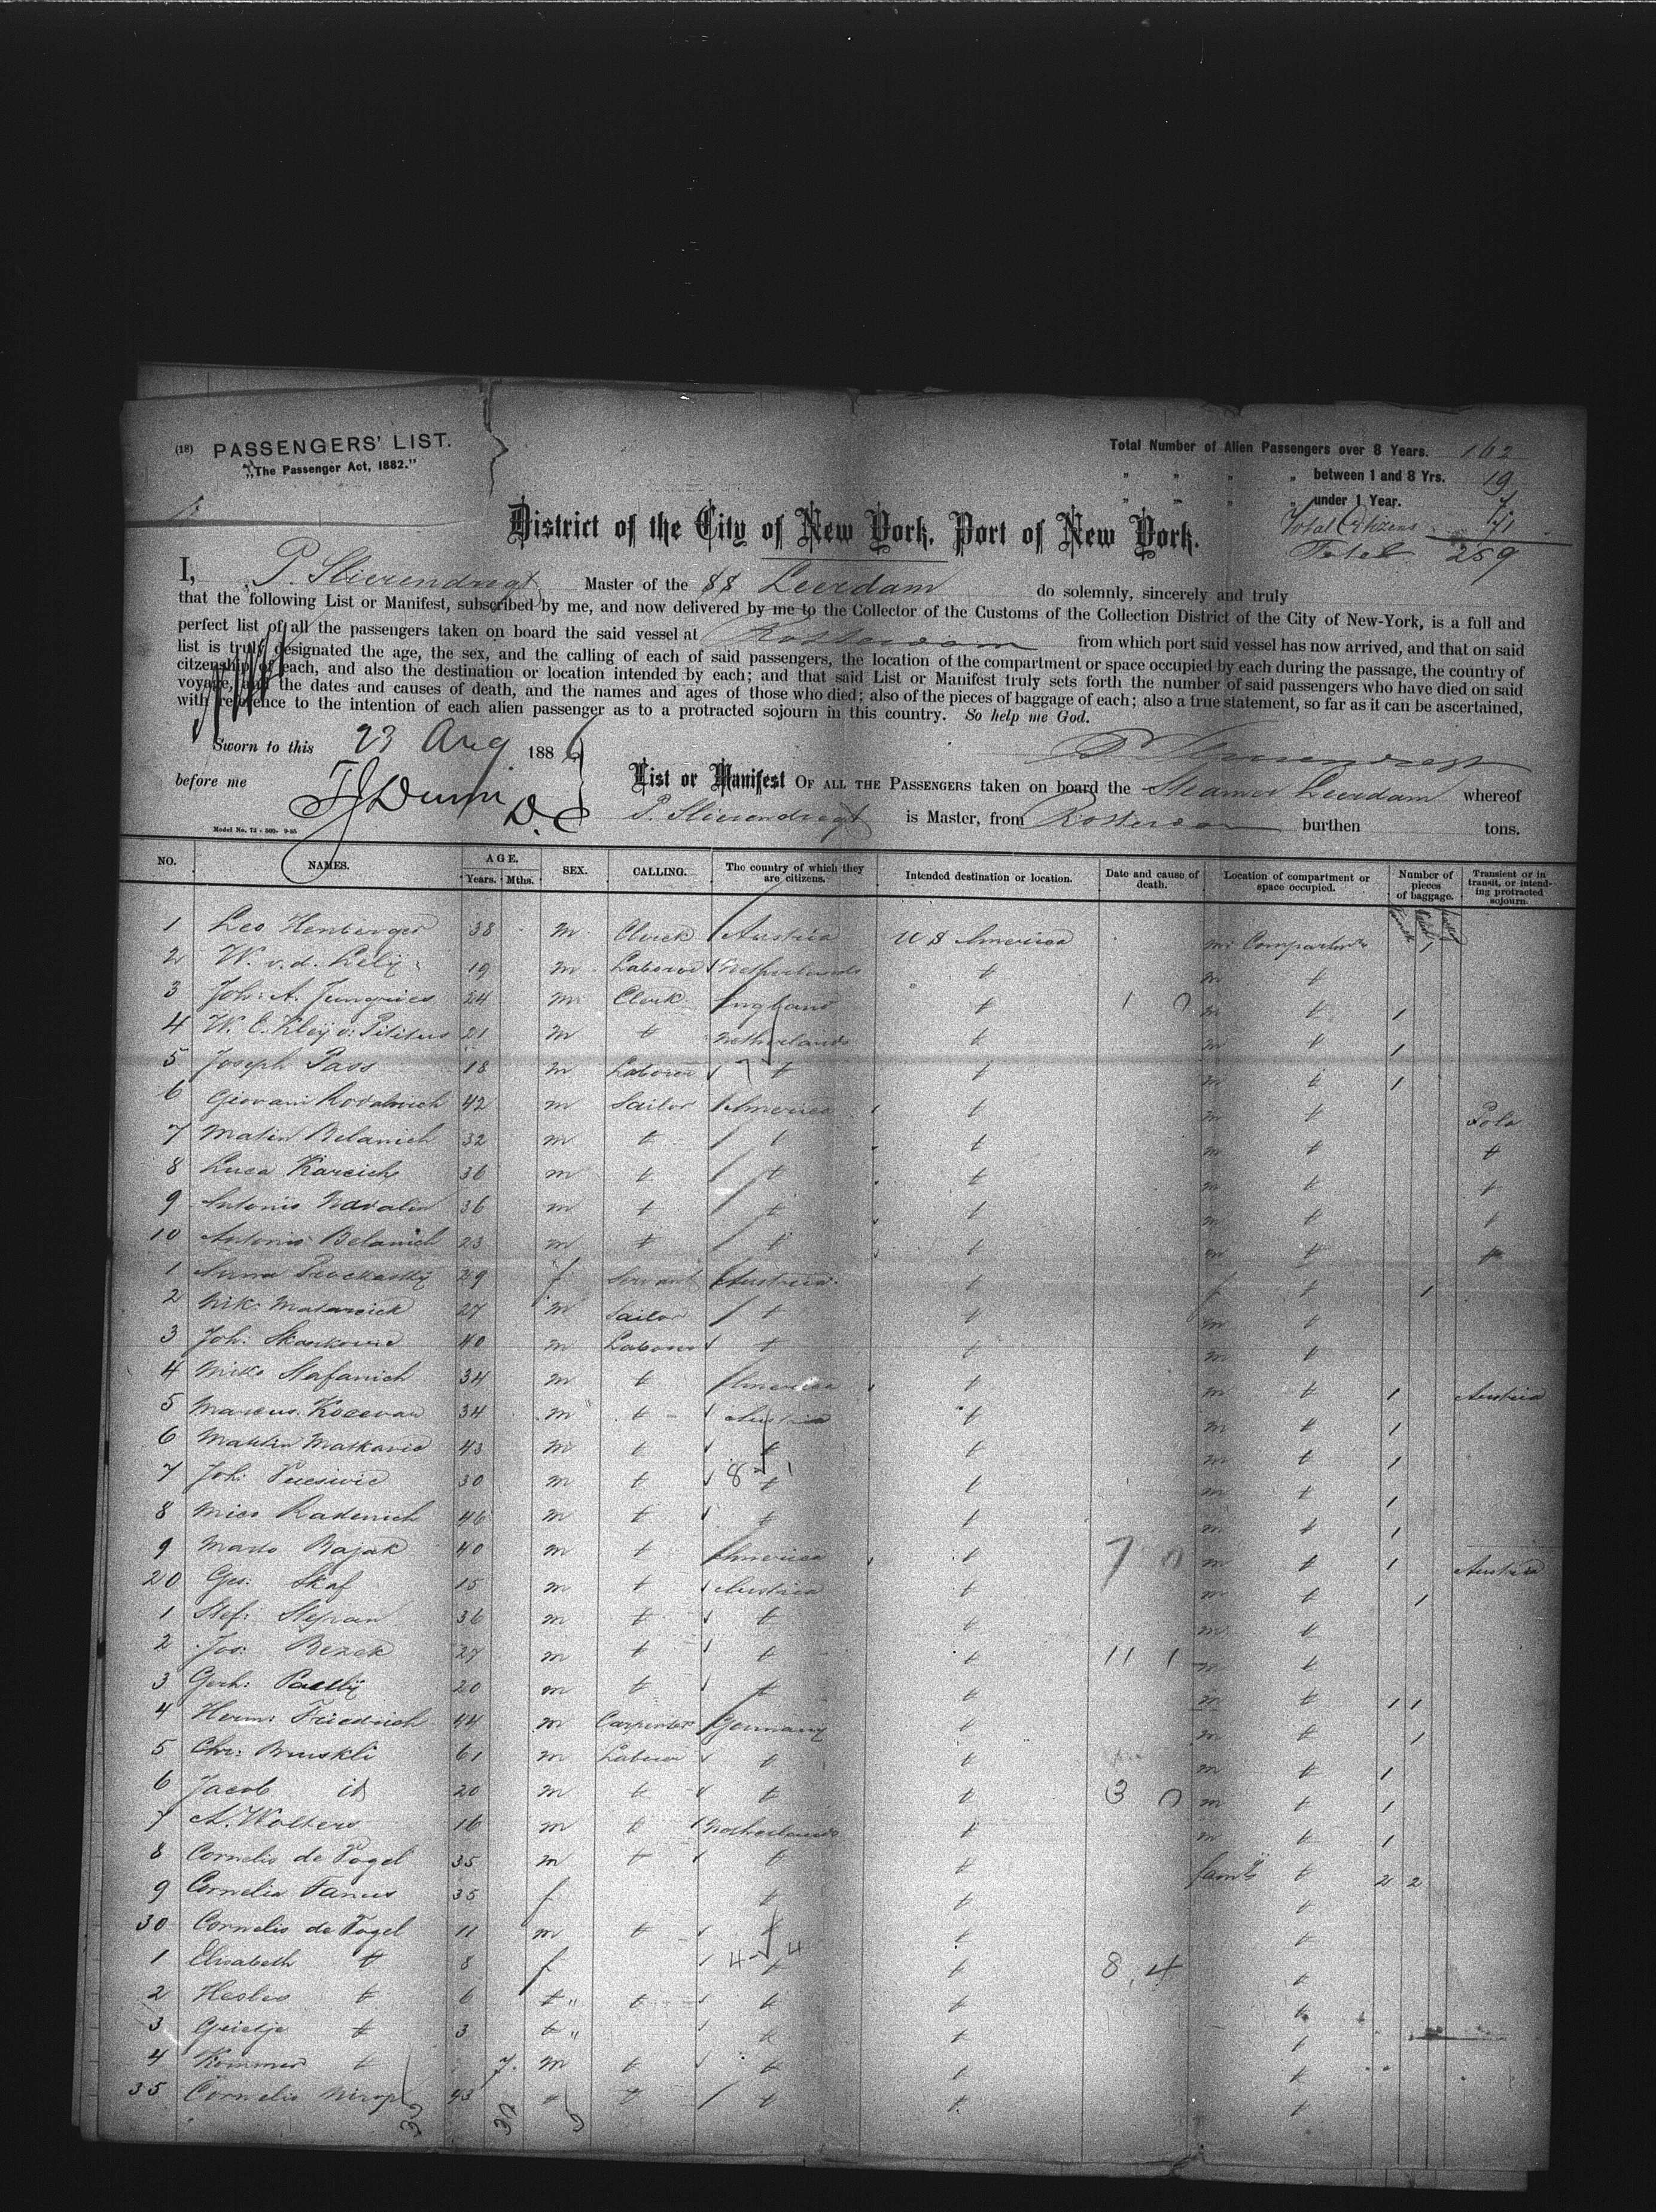 (18) PASSENGERS' LIST.
"The Passenger Act, 1882."
Total Number of Alien Passengers over 8 Years. 162
" " " " between 1 and 8 Yrs. 19
" " " " under 1 Year. 7
Total Citizens 71
Total 259
District of the City of New York, Port of New York.
I, P. Stierendregt Master of the SS Leerdam do solemnly, sincerely and truly
that the following List or Manifest, subscribed by me, and now delivered by me to the Collector of the Customs of the Collection District of the City of New-York, is a full and
perfect list of all the passengers taken on board the said vessel at Rotterdam from which port said vessel has now arrived, and that on said
list is truly designated the age, the sex, and the calling of each of said passengers, the location of the compartment or space occupied by each during the passage, the country of
citzenship of each, and also the destination or location intended by each; and that said List or Manifest truly sets forth the number of said passengers who have died on said
voyage, and the dates and causes of death, and the names and ages of those who died; also of the pieces of baggage of each; also a true statement, so far as it can be ascertained,
with reference to the intention of each alien passenger as to a protracted sojourn in this country. So help me God.
Sworn to this 23 Aug 1886
P Stierendregt
before me TJ Dunn D.C
List or Manifest OF ALL THE PASSENGERS taken on board the Steamer Leerdam whereof
P. Stierendregt is Master, from Rotterdam burthen tons.
Model No. 72 - 500- 9-85
NO. NAMES. AGE. Years. Mths. SEX. CALLING. The country of which they are citizens. Intended destination or location. Date and cause of death. Location of compartment or space occupied. Number of pieces of baggage. Transient or in transit, or intending protracted sojourn.
1 Leo Henberger 38 m Clerk Austria U S America m Compartm 1
2 W. v. d. Lelij 19 m Laborer Netherlands t m t
3 Joh: A. 24 m Clerk England t 1 0 m t 1
4 W. C. Kleij v: 21 m t Netherlands t m t 1
5 Joseph Pass 18 m Laborer t t m t 1
6 Giovani 42 m Sailor America t m t Pola
7 Matin Belanich 32 m t t t m t t
8 Luca Karcich 36 m t t t m t t
9 Antonio 36 m t t t m t t
10 Antonio Belanich 23 m t t t m t t
1 Anna 29 f Servant Austria t f t 1
2 Nik: 27 m Sailor t t m t
3 Joh: 40 m Laborer t t m t
4 Miko Stefanich 34 m t America t m t 1 Austria
5 Marcus Kocevar 34 m t Austria t m t 1
6 43 m t t t m t 1
7 Joh: 30 m t 8 1 t t m t 1
8 Mico Radenich 46 m t t t m t 1
9 Marko Bajak 40 m t America t 7 0 m t 1 Austria
20 Geo: Skaf 15 m t Austria t m t 1
1 Stef: Stepan 36 m t t t m t
2 Jos: Bezek 27 m t t t 11 1 m t
3 Gerh: 20 m t t t m t 1 1
4 Herm: Friedrich 44 m Carpenter Germany t m t 1
5 Chr: Bruskli 61 m Laborer t t m t 1
6 Jacob id 20 m t t t 3 0 m t 1
7 A. Wolters 16 m t Netherlands t m t 1
8 Cornelis de Vogel 35 m t t t t 2 2
9 Cornelia 35 f t t t
30 Cornelis de Vogel 11 m t t t t
1 Elisabeth t 8 f 4 4 t t 8 4 t
2 t 6 t " t t t t
3 Grietje t 3 t " t t t
4 Kommer t 7 m t t t t
35 Cornelis 43 t t t t